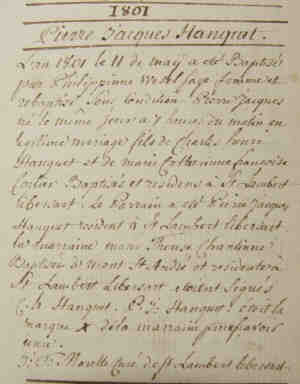 1801
Pierre Jacques Hanquet.
L'an 1801 le 11 de may a eté Baptisé
par Philippinne sage femme et
rebaptisé sous Condition Pierre Jacques
né le même jour a 7 heures du matin en
legitime mariage fils de Charles
Hanquet et de marie Catherinne francoise
Baptisés et residens à St Lambert
libersart. Le Parrain a eté Pierre Jacques
Hanquet resident à St Lambert libersart
la marraine marie
Baptisée de mont St André et residente à
St Lambert Libersart etoient signés
Hanquet. P. J. Hanquet. étoit la
marque X de la marraine
J. Curé de St Lambert libersart.